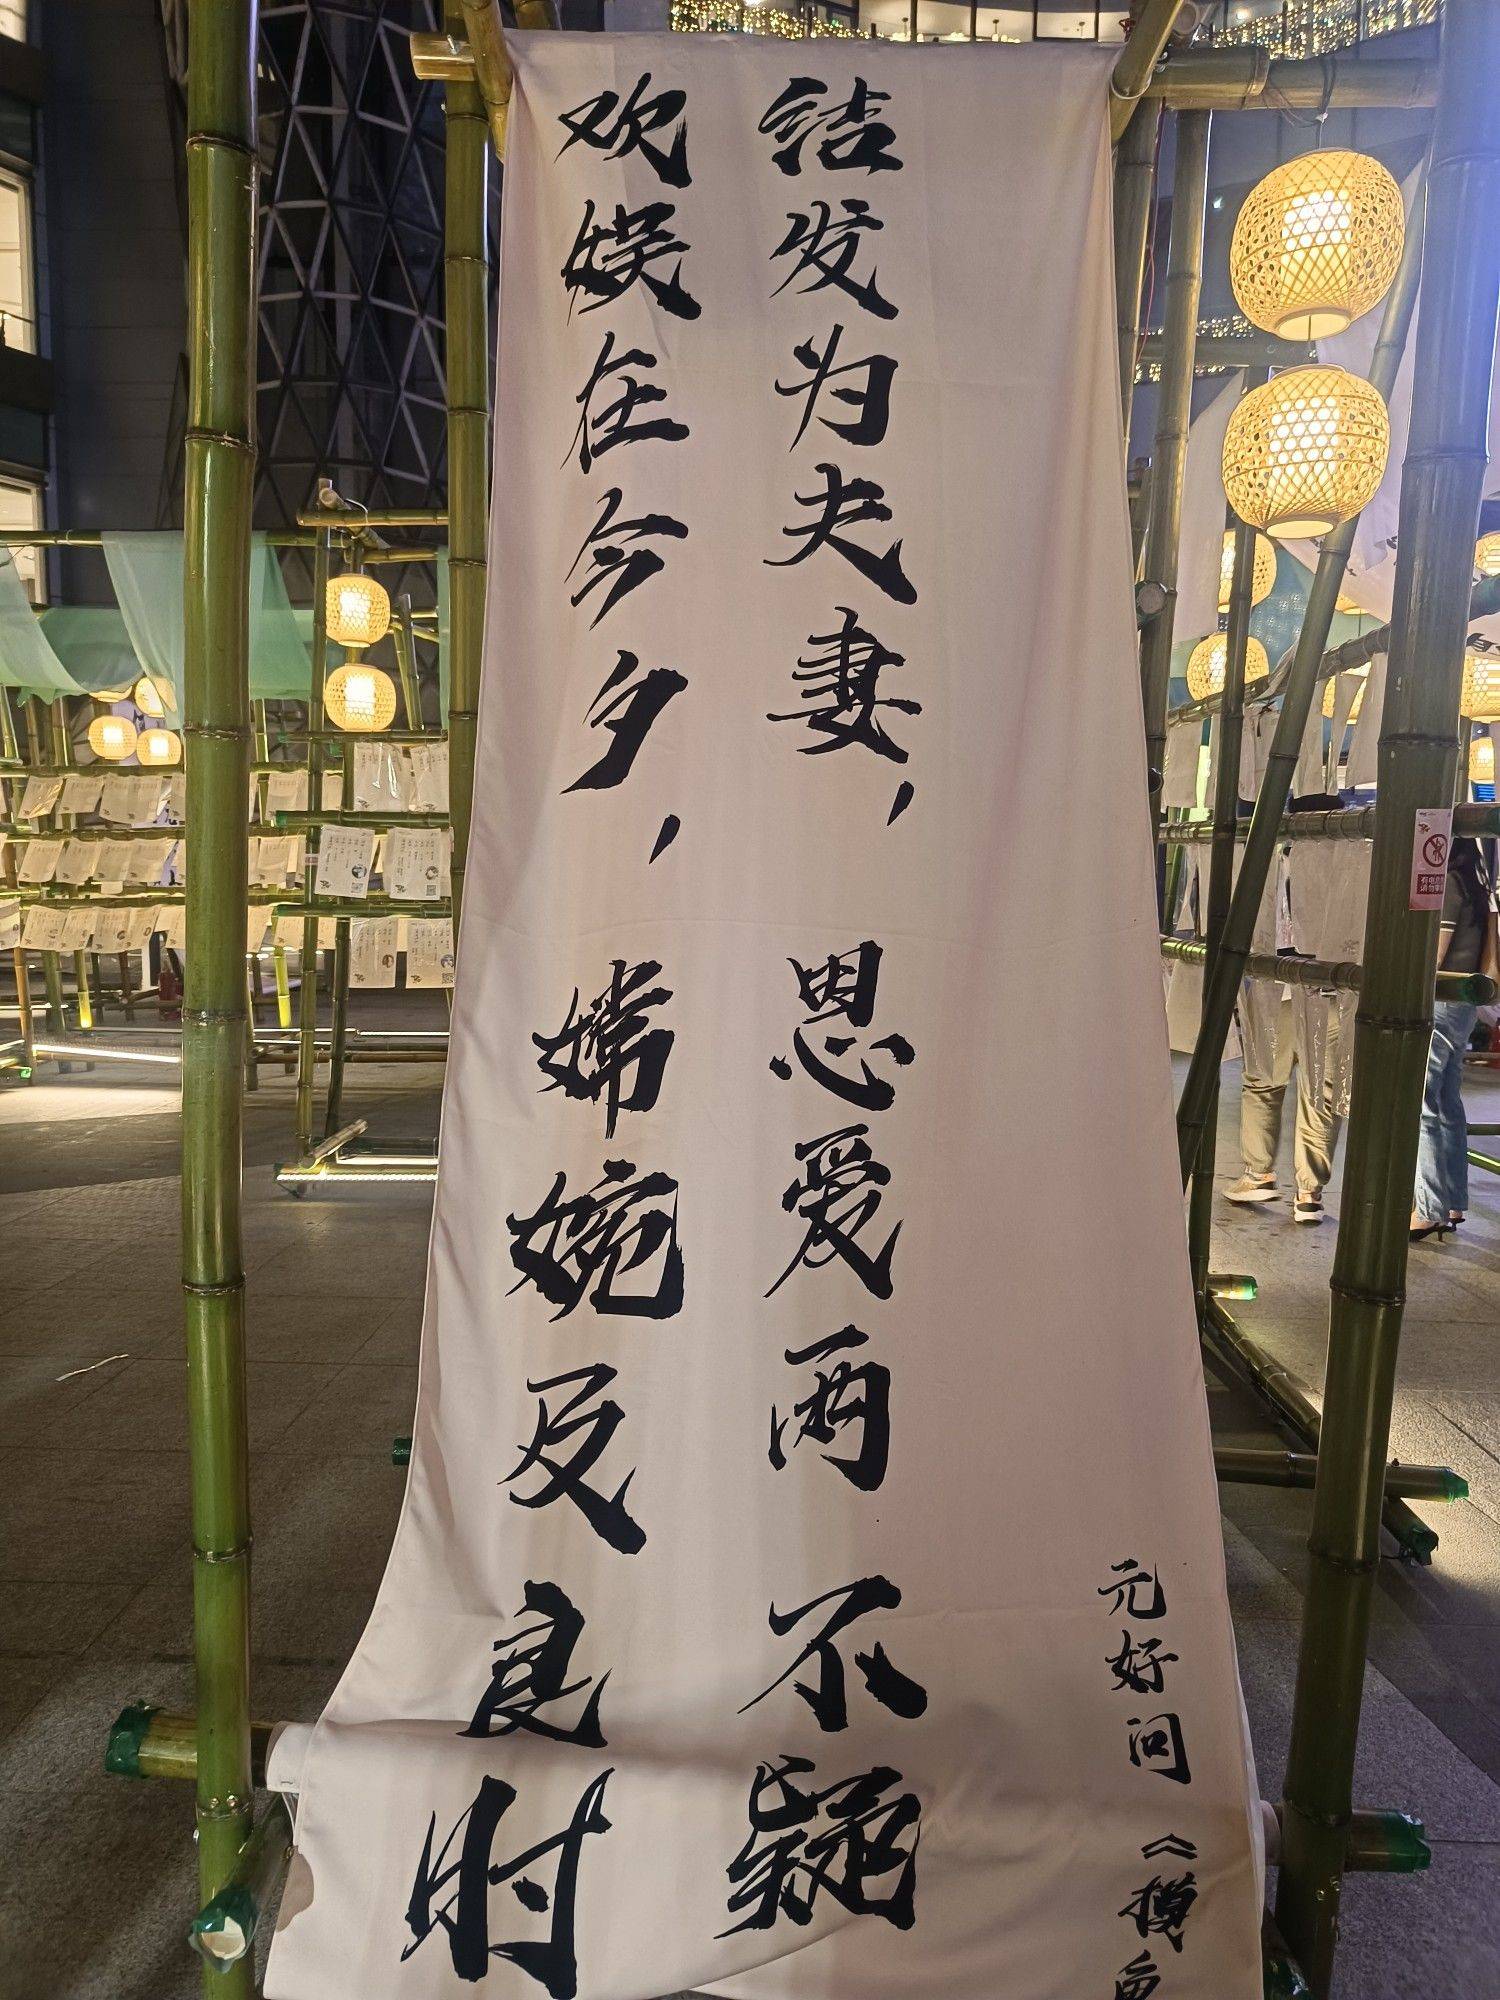 结发为夫妻，恩爱两不疑
欢娱在今夕，嫦婉及良时
元好问《摸鱼